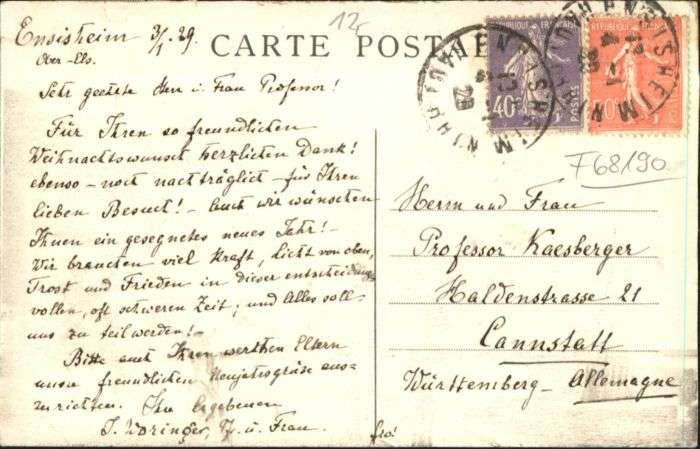 12c
Ensisheim 3/1. 29.
Ober-Els.
CARTE POSTALE
RÉPUBLIQUE FRANÇAISE
40c
POSTES
ENSISHEIM
HAUT-RHIN
Sehr geehrte Herr u. Frau Professor!
Für Ihren so freundlichen
Weihnachtswunsch herzlichen Dank!
ebenso – noch nachträglich – für Ihren
lieben Besuch! – Auch wir wünschen
Ihnen ein gesegnetes neues Jahr! –
Wir brauchen viel Kraft, Licht von oben,
Trost und Frieden in dieser entscheidungs-
vollen, oft schweren Zeit, und Alles soll
uns zu teil werden! –
Bitte auch Ihren werthen Eltern
unsre freundlichen Neujahrsgrüße aus=
zurichten. Ihre Ergebenen
J. Woringer, Pf. u. Frau.
fro!
F68190
Herrn und Frau
Professor Kaesberger
Haldenstrasse 21
Cannstatt
Württemberg – Allemagne